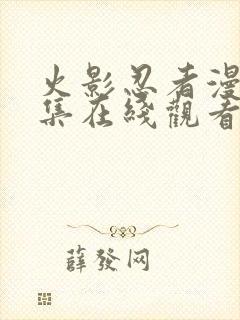 火影忍者漫
集在綫觀看
薛發网